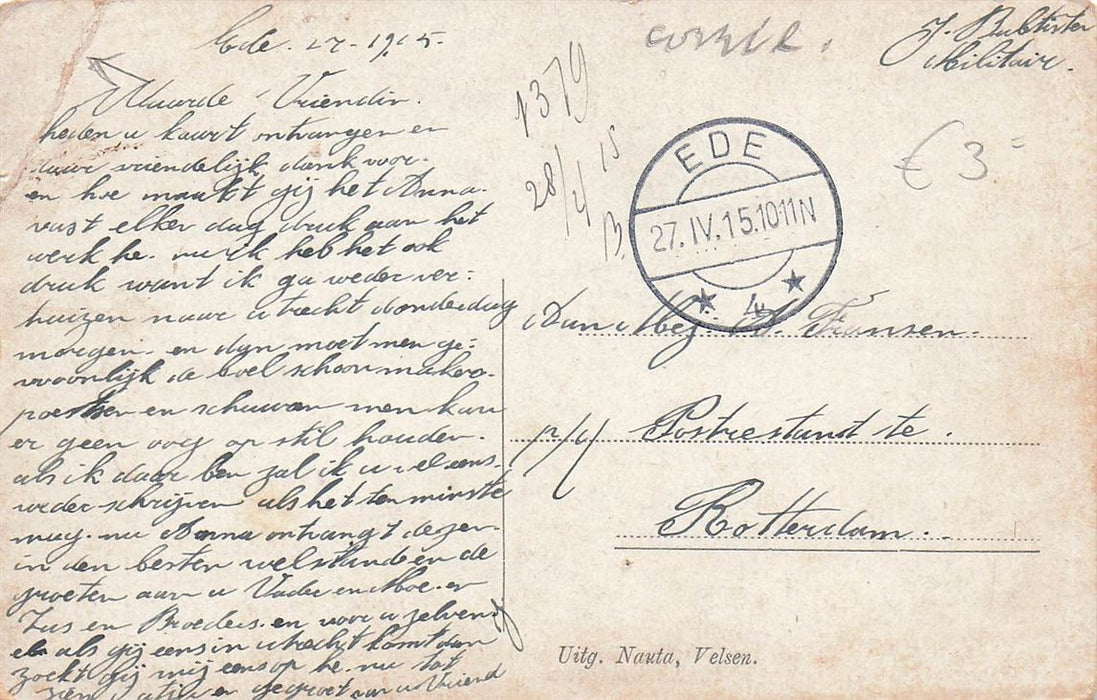 Ede. 27-1915.
Waarde Vriendin.
heden u kaart ontvangen en
daar vriendelijk dank voor.
en hoe maakt gij het Anna.
vast elken dag druk aan het
werk he. nu ik heb het ook
druk want ik ga weder ver-
huizen naar Utrecht donderdag
morgen. en dan moet men ge-
woonlijk de boel schoonmaken.
poetsen en schuuren men kan
er geen oog op stil houden.
als ik daar ben zal ik u wel eens
weder schrijven als het ten minste
mag. nu Anna ontvangt dezen
in den besten welstand en de
groeten aan u Vader en Moe. en
Zus en Broeders. en voor u zelven
en als gij eens in Utrecht komt dan
zoekt gij mij eens op he. nu tot
ziens en gegroet van u Vriend
J.
Militair.
1379
28/4 15
B
€ 3-
EDE
27.IV.15.10-11N
4
Aan Mej. Fransen.
p/a Postrestand te.
Rotterdam.
Uitg. Nauta, Velsen.